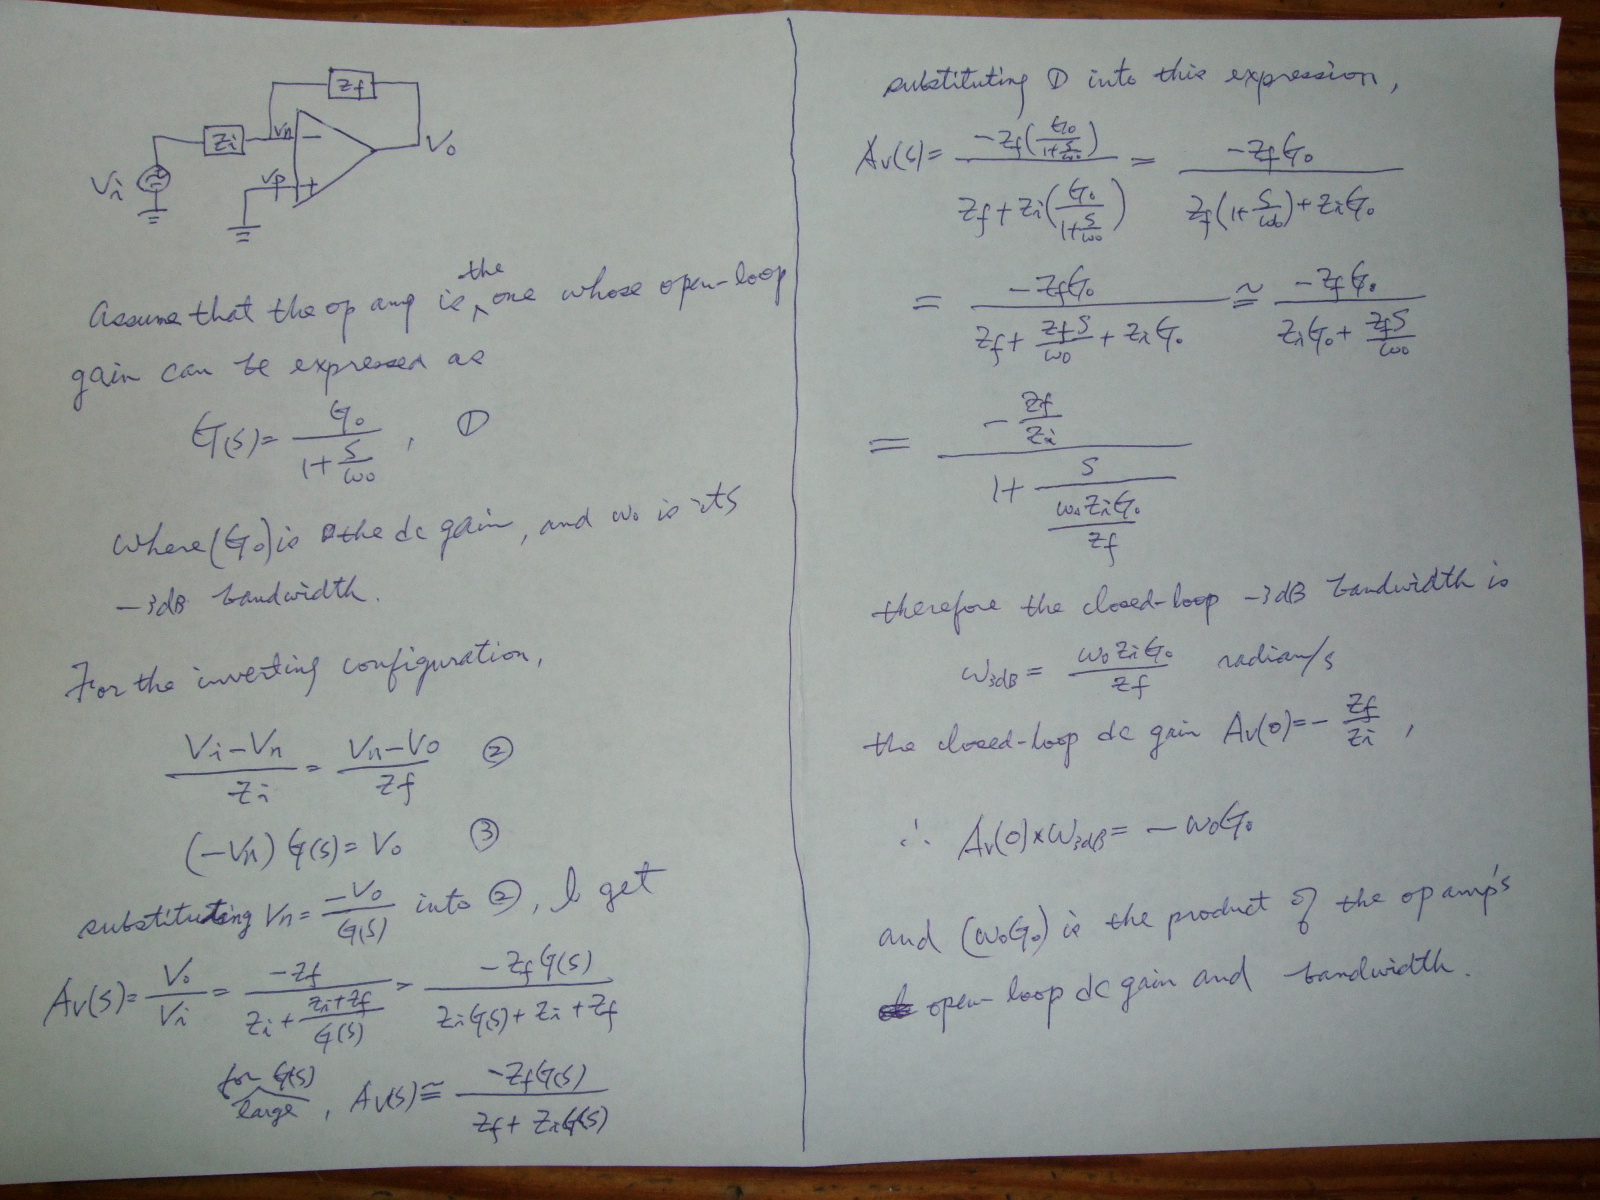 Zf
Zi
Vn
−
Vo
Vi
Vp
+
Assume that the op amp is the one whose open-loop
gain can be expressed as
G(s)= G₀/(1+s/ω₀), ①
where (G₀) is the dc gain, and ω₀ is its
−3dB bandwidth.
For the inverting configuration,
(Vi−Vn)/Zi = (Vn−Vo)/Zf ②
(−Vn) G(s)= Vo ③
substituting Vn= −Vo/G(s) into ②, I get
Av(s)= Vo/Vi = −Zf/(Zi+(Zi+Zf)/G(s)) = −Zf G(s)/(Zi G(s)+Zi+Zf)
for G(s) large, Av(s)≅ −Zf G(s)/(Zf+Zi G(s))
substituting ① into this expression,
Av(s)= −Zf(G₀/(1+s/ω₀))/(Zf+Zi(G₀/(1+s/ω₀))) = −Zf G₀/(Zf(1+s/ω₀)+Zi G₀)
= −Zf G₀/(Zf+Zf s/ω₀+Zi G₀) ≅ −Zf G₀/(Zi G₀+Zf s/ω₀)
= (−Zf/Zi)/(1+s/(ω₀ Zi G₀/Zf))
therefore the closed-loop −3dB bandwidth is
ω3dB= ω₀ Zi G₀/Zf radian/s
the closed-loop dc gain Av(0)=−Zf/Zi,
∴ Av(0)×ω3dB= −ω₀G₀
and (ω₀G₀) is the product of the op amp's
open-loop dc gain and bandwidth.